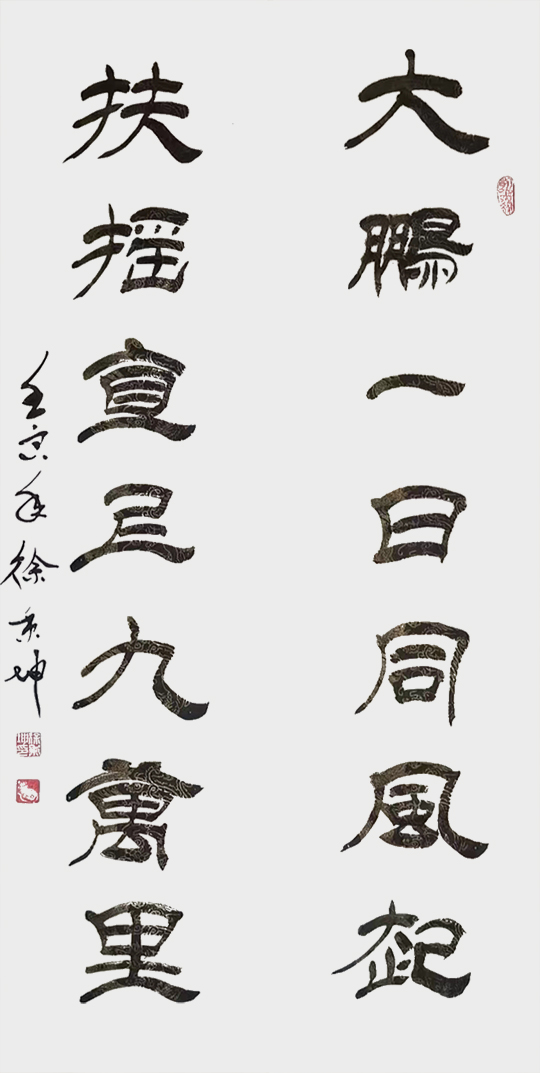 大鵬一日同風起
扶摇直九萬里
壬寅年徐坤